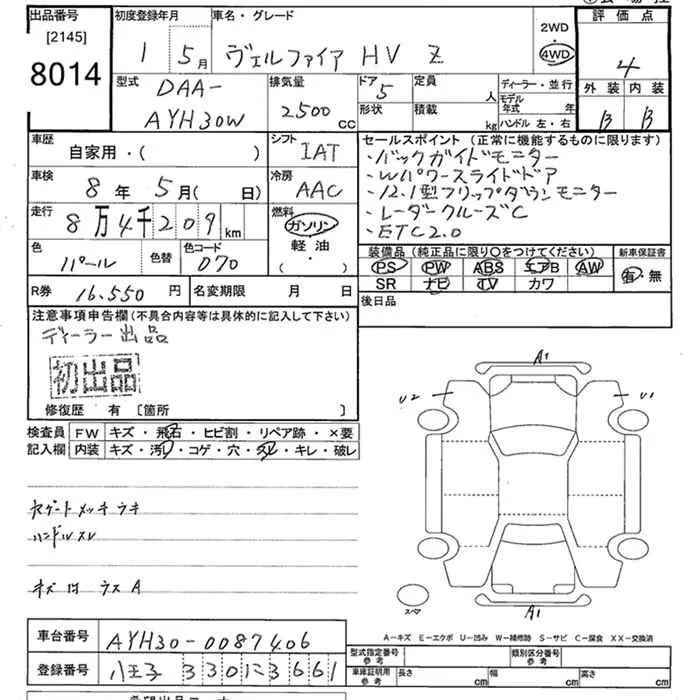 出品番号 [2145] 8014
初度登録年月 1年 5月
車名・グレード ヴェルファイア HV Z
2WD ・ 4WD
評価点 4
外装 内装
B B
型式 DAA-AYH30W
排気量 2500 cc
ドア 5
形状
定員 人
積載 kg
ディーラー・並行
モデル年式 年
ハンドル 左・右
車歴 自家用・( )
シフト IAT
車検 8年 5月(日)
冷房 AAC
走行 8万4千209km
燃料 ガソリン・軽油・( )
色 パール 色替 色コード 070
セールスポイント (正常に機能するものに限ります)
・バックガイドモニター
・Wパワースライドドア
・12.1型フリップダウンモニター
・レーダークルーズC
・ETC2.0
装備品 (純正品に限り○をつけてください) 新車保証書
PS PW ABS エアB AW 有・無
SR ナビ TV カワ
R券 16,550円 名変期限 月 日
後日品
注意事項申告欄(不具合内容等は具体的に記入して下さい)
ディーラー出品
初出品
修復歴 有 [箇所 ]
検査員 FW キズ・飛石・ヒビ割・リペア跡・×要
記入欄 内装 キズ・汚レ・コゲ・穴・スレ・キレ・破レ
ヤゲートメッキウキ
ハンドルスレ
キズ凹 ウスA
A1
U2 U1
スペア
A1
A－キズ E－エクボ U－凹み W－補修跡 S－サビ C－腐食 XX－交換済
車台番号 AYH30-0087406
登録番号 八王子 330に3661
型式指定番号 参考 類別区分番号 参考
車庫証明用 参考 長さ cm 幅 cm 高さ cm